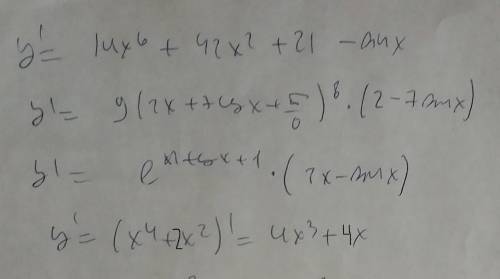 y' = 14x⁶ + 42x² + 21 - sinx
y' = 9(2x+7cosx+5/0)⁸·(2-7sinx)
y' = e^(x²+cosx+1)·(2x-sinx)
y' = (x⁴+2x²)' = 4x³+4x